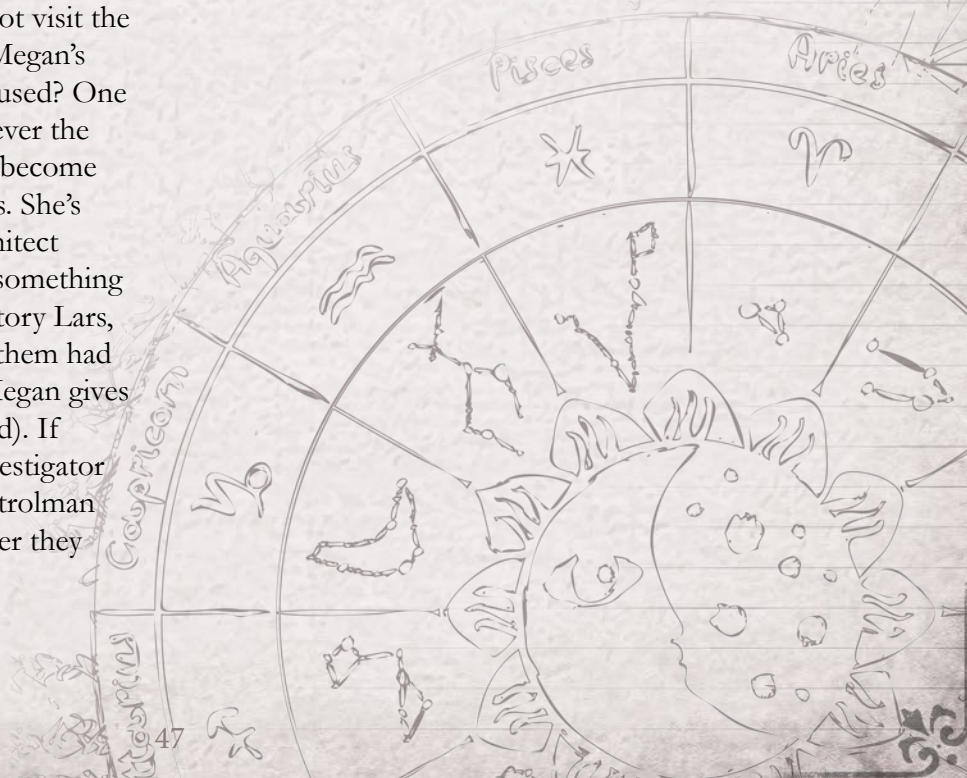 ot visit the
Megan's
used? One
ever the
become
s. She's
hitect
something
tory Lars,
them had
Megan gives
d). If
estigator
trolman
er they
Pisces
Aries
Aquarius
Capricorn
47